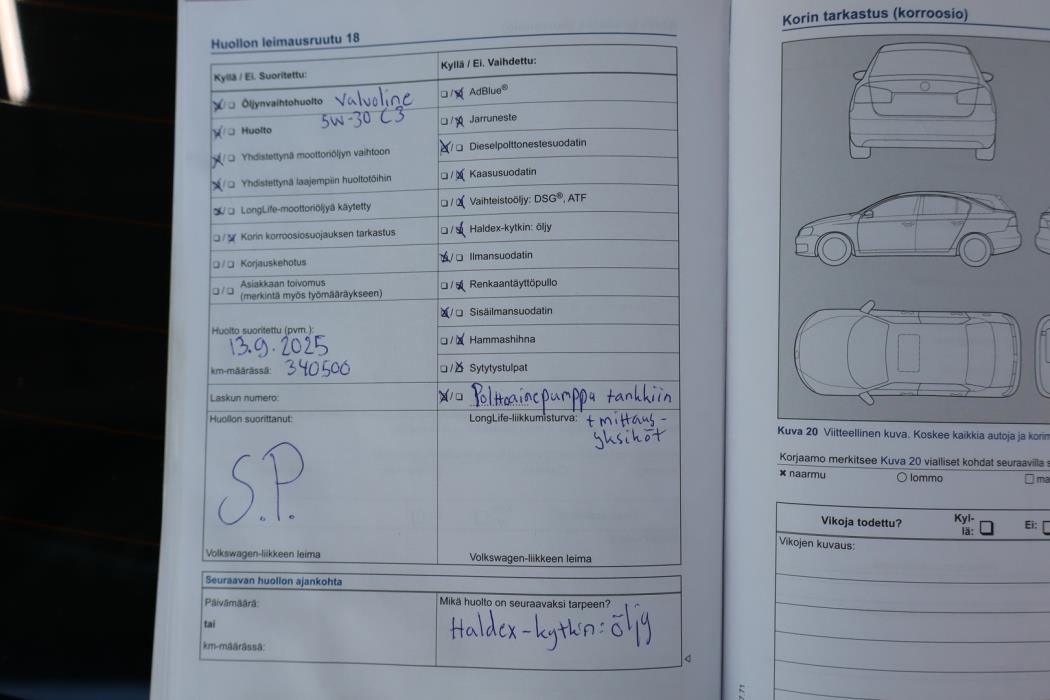 Huollon leimausruutu 18
Kyllä / Ei. Suoritettu:
☒/☐ Öljynvaihtohuolto Valvoline
5W-30 C3
☒/☐ Huolto
☒/☐ Yhdistettynä moottoriöljyn vaihtoon
☒/☐ Yhdistettynä laajempiin huoltotöihin
☒/☐ LongLife-moottoriöljyä käytetty
☐/☒ Korin korroosiosuojauksen tarkastus
☐/☐ Korjauskehotus
☐/☐ Asiakkaan toivomus
(merkintä myös työmääräykseen)
Huolto suoritettu (pvm.):
13.9.2025
km-määrässä: 340500
Laskun numero:
Huollon suorittanut:
S.P.
Volkswagen-liikkeen leima
Kyllä / Ei. Vaihdettu:
☐/☒ AdBlue®
☐/☒ Jarruneste
☒/☐ Dieselpolttonestesuodatin
☐/☒ Kaasusuodatin
☐/☒ Vaihteistoöljy: DSG®, ATF
☐/☒ Haldex-kytkin: öljy
☒/☐ Ilmansuodatin
☐/☒ Renkaantäyttöpullo
☒/☐ Sisäilmansuodatin
☐/☒ Hammashihna
☐/☒ Sytytystulpat
☒/☐ Polttoainepumppu tankkiin
LongLife-liikkumisturva: + mittaus-
yksiköt
Volkswagen-liikkeen leima
Seuraavan huollon ajankohta
Päivämäärä:
tai
km-määrässä:
Mikä huolto on seuraavaksi tarpeen?
Haldex-kytkin: öljy
Korin tarkastus (korroosio)
Kuva 20 Viitteellinen kuva. Koskee kaikkia autoja ja
Korjaamo merkitsee Kuva 20 vialliset kohdat seuraavilla
× naarmu
○ lommo
☐
Vikoja todettu?
Kyl-
lä: ☐
Ei: ☐
Vikojen kuvaus: